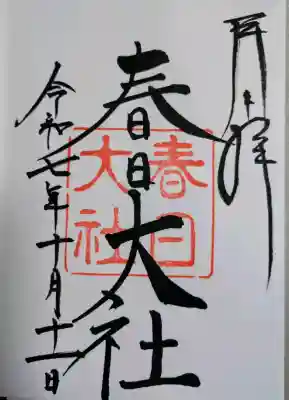 奉拝
春日大社
春日大社
令和七年十月十一日